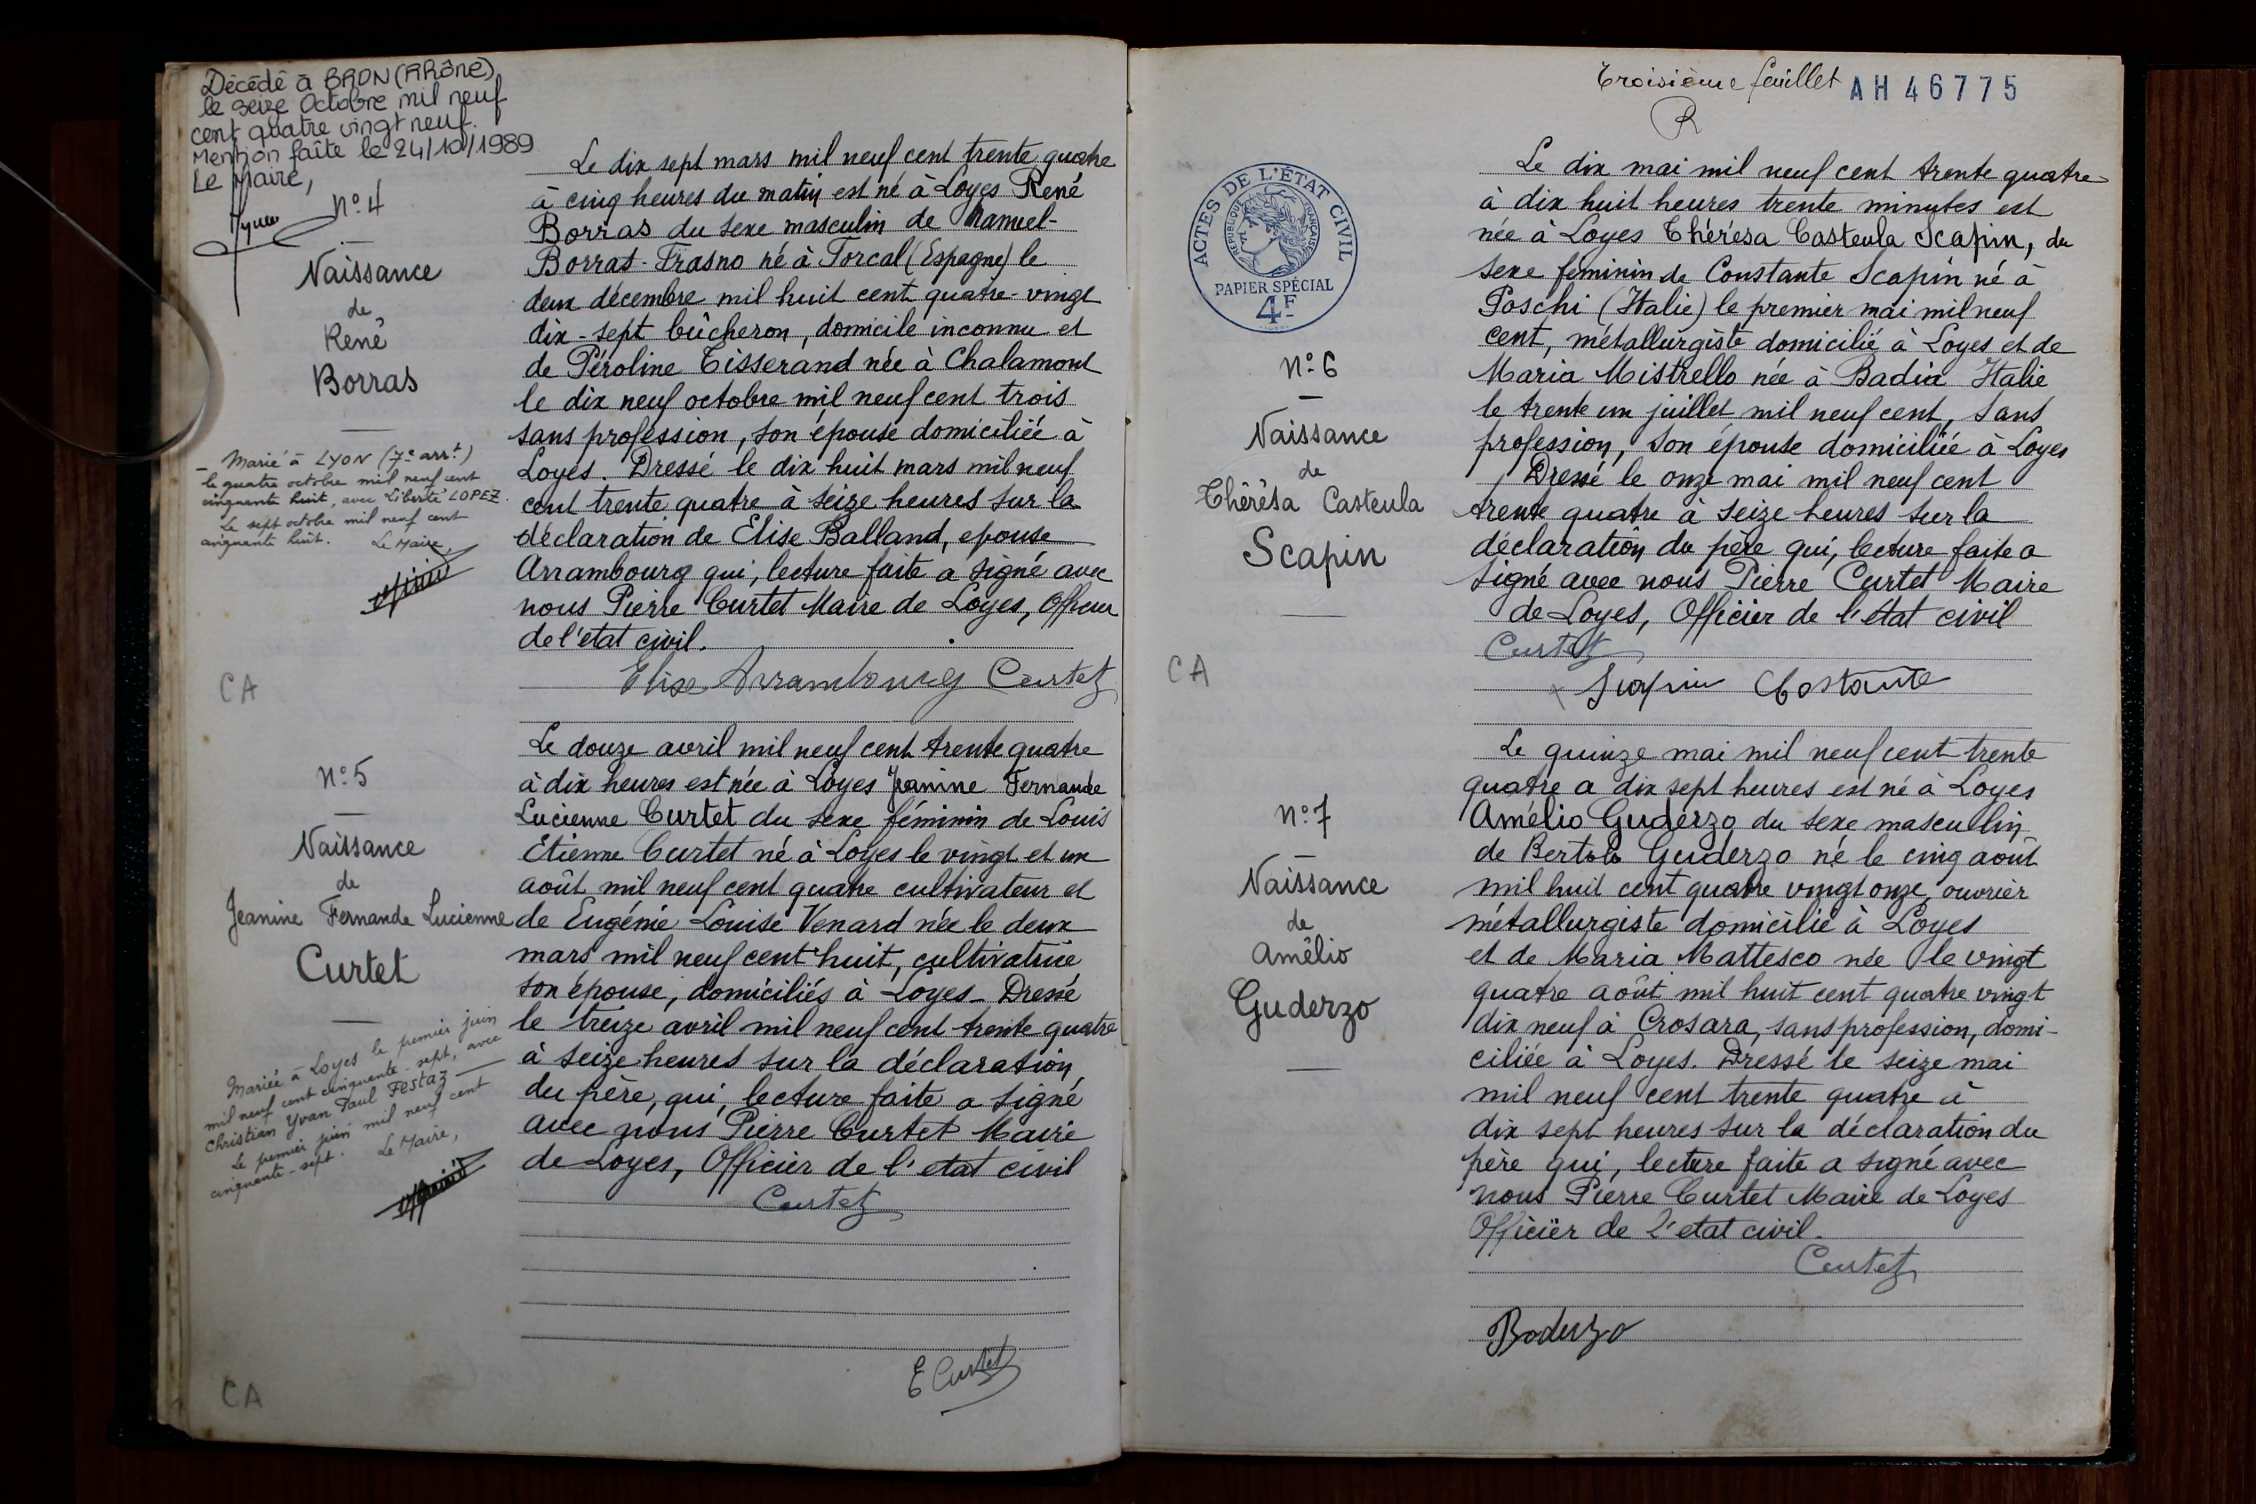 Décédé à BRON (RHône)
le seize Octobre mil neuf
cent quatre vingt neuf.
Mention faîte le 24/10/1989
Le Maire,
N° 4
Naissance
de
René
Borras
Marié à LYON (7e arrt)
le quatre octobre mil neuf cent
cinquante huit, avec Liberté LOPEZ.
Le sept octobre mil neuf cent
cinquante huit. Le Maire,
CA
Le dix sept mars mil neuf cent trente quatre
à cinq heures du matin est né à Loyes René
Borras du sexe masculin de Manuel-
Borras-Frasno né à Torcal (Espagne) le
deux décembre mil huit cent quatre-vingt
dix-sept bûcheron, domicile inconnu et
de Péroline Tisserand née à Chalamont
le dix neuf octobre mil neuf cent trois
sans profession, son épouse domiciliée à
Loyes. Dressé le dix huit mars mil neuf
cent trente quatre à seize heures sur la
déclaration de Elise Balland, epouse
Arrambourg qui, lecture faite a signé avec
nous Pierre Curtet Maire de Loyes, Officier
de l'etat civil.
Elise Arrambourg Curtet
N° 5
Naissance
de
Jeanine Fernande Lucienne
Curtet
Mariée à Loyes le premier juin
mil neuf cent cinquante-sept, avec
Christian Yvan Paul Festaz
Le premier juin mil neuf cent
cinquante-sept. Le Maire,
CA
Le douze avril mil neuf cent trente quatre
à dix heures est née à Loyes Jeanine Fernande
Lucienne Curtet du sexe féminin de Louis
Etienne Curtet né à Loyes le vingt et un
août mil neuf cent quatre cultivateur et
de Eugénie Louise Venard née le deux
mars mil neuf cent huit, cultivatrice
son épouse, domiciliés à Loyes_ Dressé
le treize avril mil neuf cent trente quatre
à seize heures sur la déclaration
du père, qui, lecture faite a signé
avec nous Pierre Curtet Maire
de Loyes, Officier de l'etat civil
Curtet
E Curtet
Troisième feuillet AH 46775
R
ACTES DE L'ÉTAT CIVIL
RÉPUBLIQUE FRANÇAISE
PAPIER SPÉCIAL
4F
N° 6
Naissance
de
Thérésa Casteula
Scapin
CA
Le dix mai mil neuf cent trente quatre
à dix huit heures trente minutes est
née à Loyes Thérésa Casteula Scapin, du
sexe féminin de Constante Scapin né à
Poschi (Italie) le premier mai mil neuf
cent, métallurgiste domicilié à Loyes et de
Maria Mistrello née à Badia Italie
le trente un juillet mil neuf cent, sans
profession, son épouse domiciliée à Loyes
Dressé le onze mai mil neuf cent
trente quatre à seize heures sur la
déclaration du père qui, lecture faite a
signé avec nous Pierre Curtet Maire
de Loyes, Officier de l'état civil
Curtet
Scapin Costante
N° 7
Naissance
de
Amélio
Guderzo
Le quinze mai mil neuf cent trente
quatre a dix sept heures est né à Loyes
Amélio Guderzo du sexe masculin
de Bertolo Guderzo né le cinq août
mil huit cent quatre vingt onze, ouvrier
métallurgiste domicilié à Loyes
et de Maria Mattesco née le vingt
quatre août mil huit cent quatre vingt
dix neuf à Crosara, sans profession, domi-
ciliée à Loyes. Dressé le seize mai
mil neuf cent trente quatre à
dix sept heures sur la déclaration du
père qui, lecture faite a signé avec
nous Pierre Curtet Maire de Loyes
Officier de l'etat civil.
Curtet
Boderzo